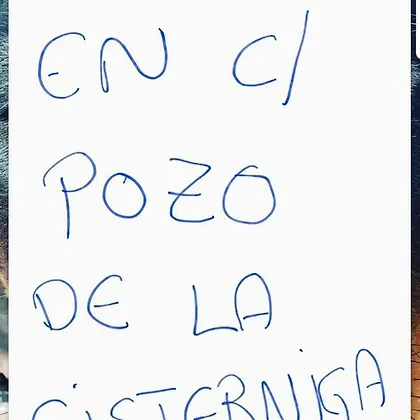 EN C/
POZO
DE LA
CISTERNIGA